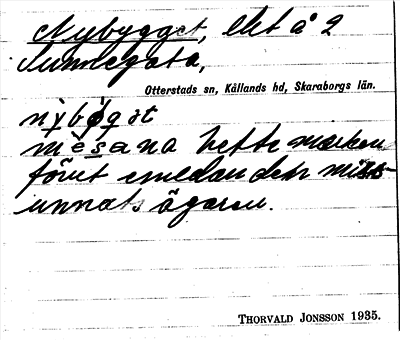 Nybygget, lht å 2
Nunnegata,
Otterstads sn, Kållands hd, Skaraborgs län.
nỳbøgət
mèsana hette marken
förut emedan den miss-
unnats ägaren.
THORVALD JONSSON 1935.